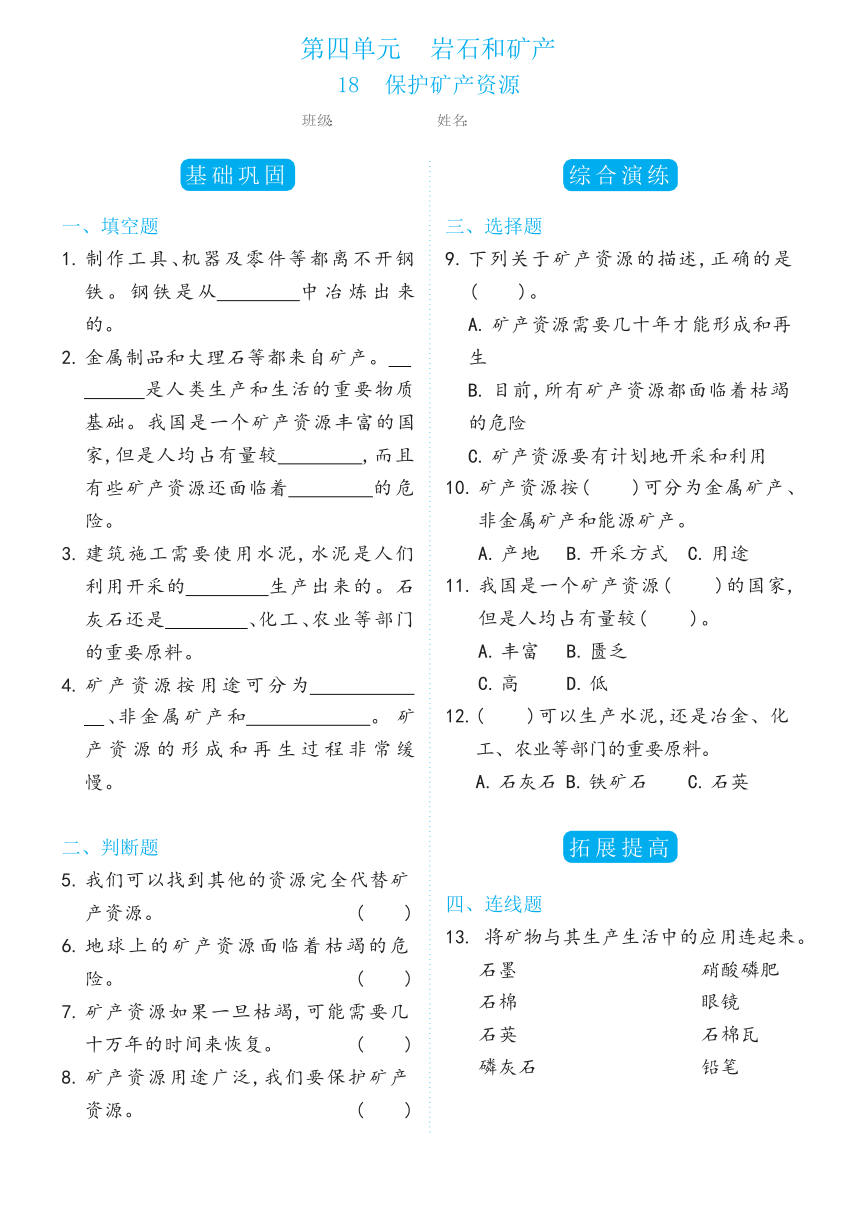 第四单元　岩石和矿产
18　保护矿产资源
班级:　　　　姓名:
基础巩固
一、填空题
1. 制作工具、机器及零件等都离不开钢
铁。钢铁是从________中冶炼出来
的。
2. 金属制品和大理石等都来自矿产。__
______是人类生产和生活的重要物质
基础。我国是一个矿产资源丰富的国
家,但是人均占有量较________,而且
有些矿产资源还面临着________的危
险。
3. 建筑施工需要使用水泥,水泥是人们
利用开采的________生产出来的。石
灰石还是________、化工、农业等部门
的重要原料。
4. 矿产资源按用途可分为__________
__、非金属矿产和____________。矿
产资源的形成和再生过程非常缓
慢。
二、判断题
5. 我们可以找到其他的资源完全代替矿
产资源。　　　　(　　)
6. 地球上的矿产资源面临着枯竭的危
险。　　　　(　　)
7. 矿产资源如果一旦枯竭,可能需要几
十万年的时间来恢复。　　　　(　　)
8. 矿产资源用途广泛,我们要保护矿产
资源。　　　　(　　)
综合演练
三、选择题
9. 下列关于矿产资源的描述,正确的是
(　　)。
A. 矿产资源需要几十年才能形成和再
生
B. 目前,所有矿产资源都面临着枯竭
的危险
C. 矿产资源要有计划地开采和利用
10. 矿产资源按(　　)可分为金属矿产、
非金属矿产和能源矿产。
A. 产地　B. 开采方式　C. 用途
11. 我国是一个矿产资源(　　)的国家,
但是人均占有量较(　　)。
A. 丰富　B. 匮乏
C. 高　D. 低
12. (　　)可以生产水泥,还是冶金、化
工、农业等部门的重要原料。
A. 石灰石 B. 铁矿石　C. 石英
拓展提高
四、连线题
13. 将矿物与其生产生活中的应用连起来。
石墨　　　　硝酸磷肥
石棉　　　　眼镜
石英　　　　石棉瓦
磷灰石　　　　铅笔